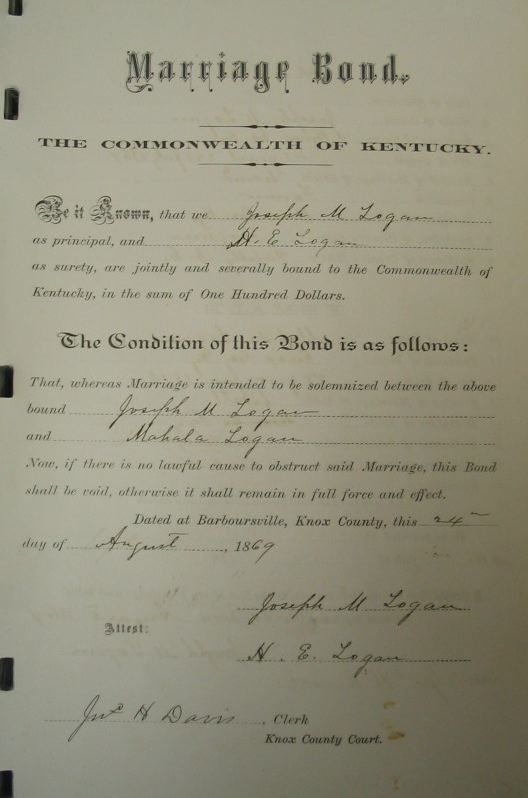 Marriage Bond.
THE COMMONWEALTH OF KENTUCKY.
Be it Known, that we Joseph M Logan
as principal, and H. E Logan
as surety, are jointly and severally bound to the Commonwealth of
Kentucky, in the sum of One Hundred Dollars.
The Condition of this Bond is as follows:
That, whereas Marriage is intended to be solemnized between the above
bound Joseph M Logan
and Mahala Logan
Now, if there is no lawful cause to obstruct said Marriage, this Bond
shall be void, otherwise it shall remain in full force and effect.
Dated at Barboursville, Knox County, this 24
day of August, 1869
Joseph M Logan
Attest:
H. E. Logan
H Davis, Clerk
Knox County Court.